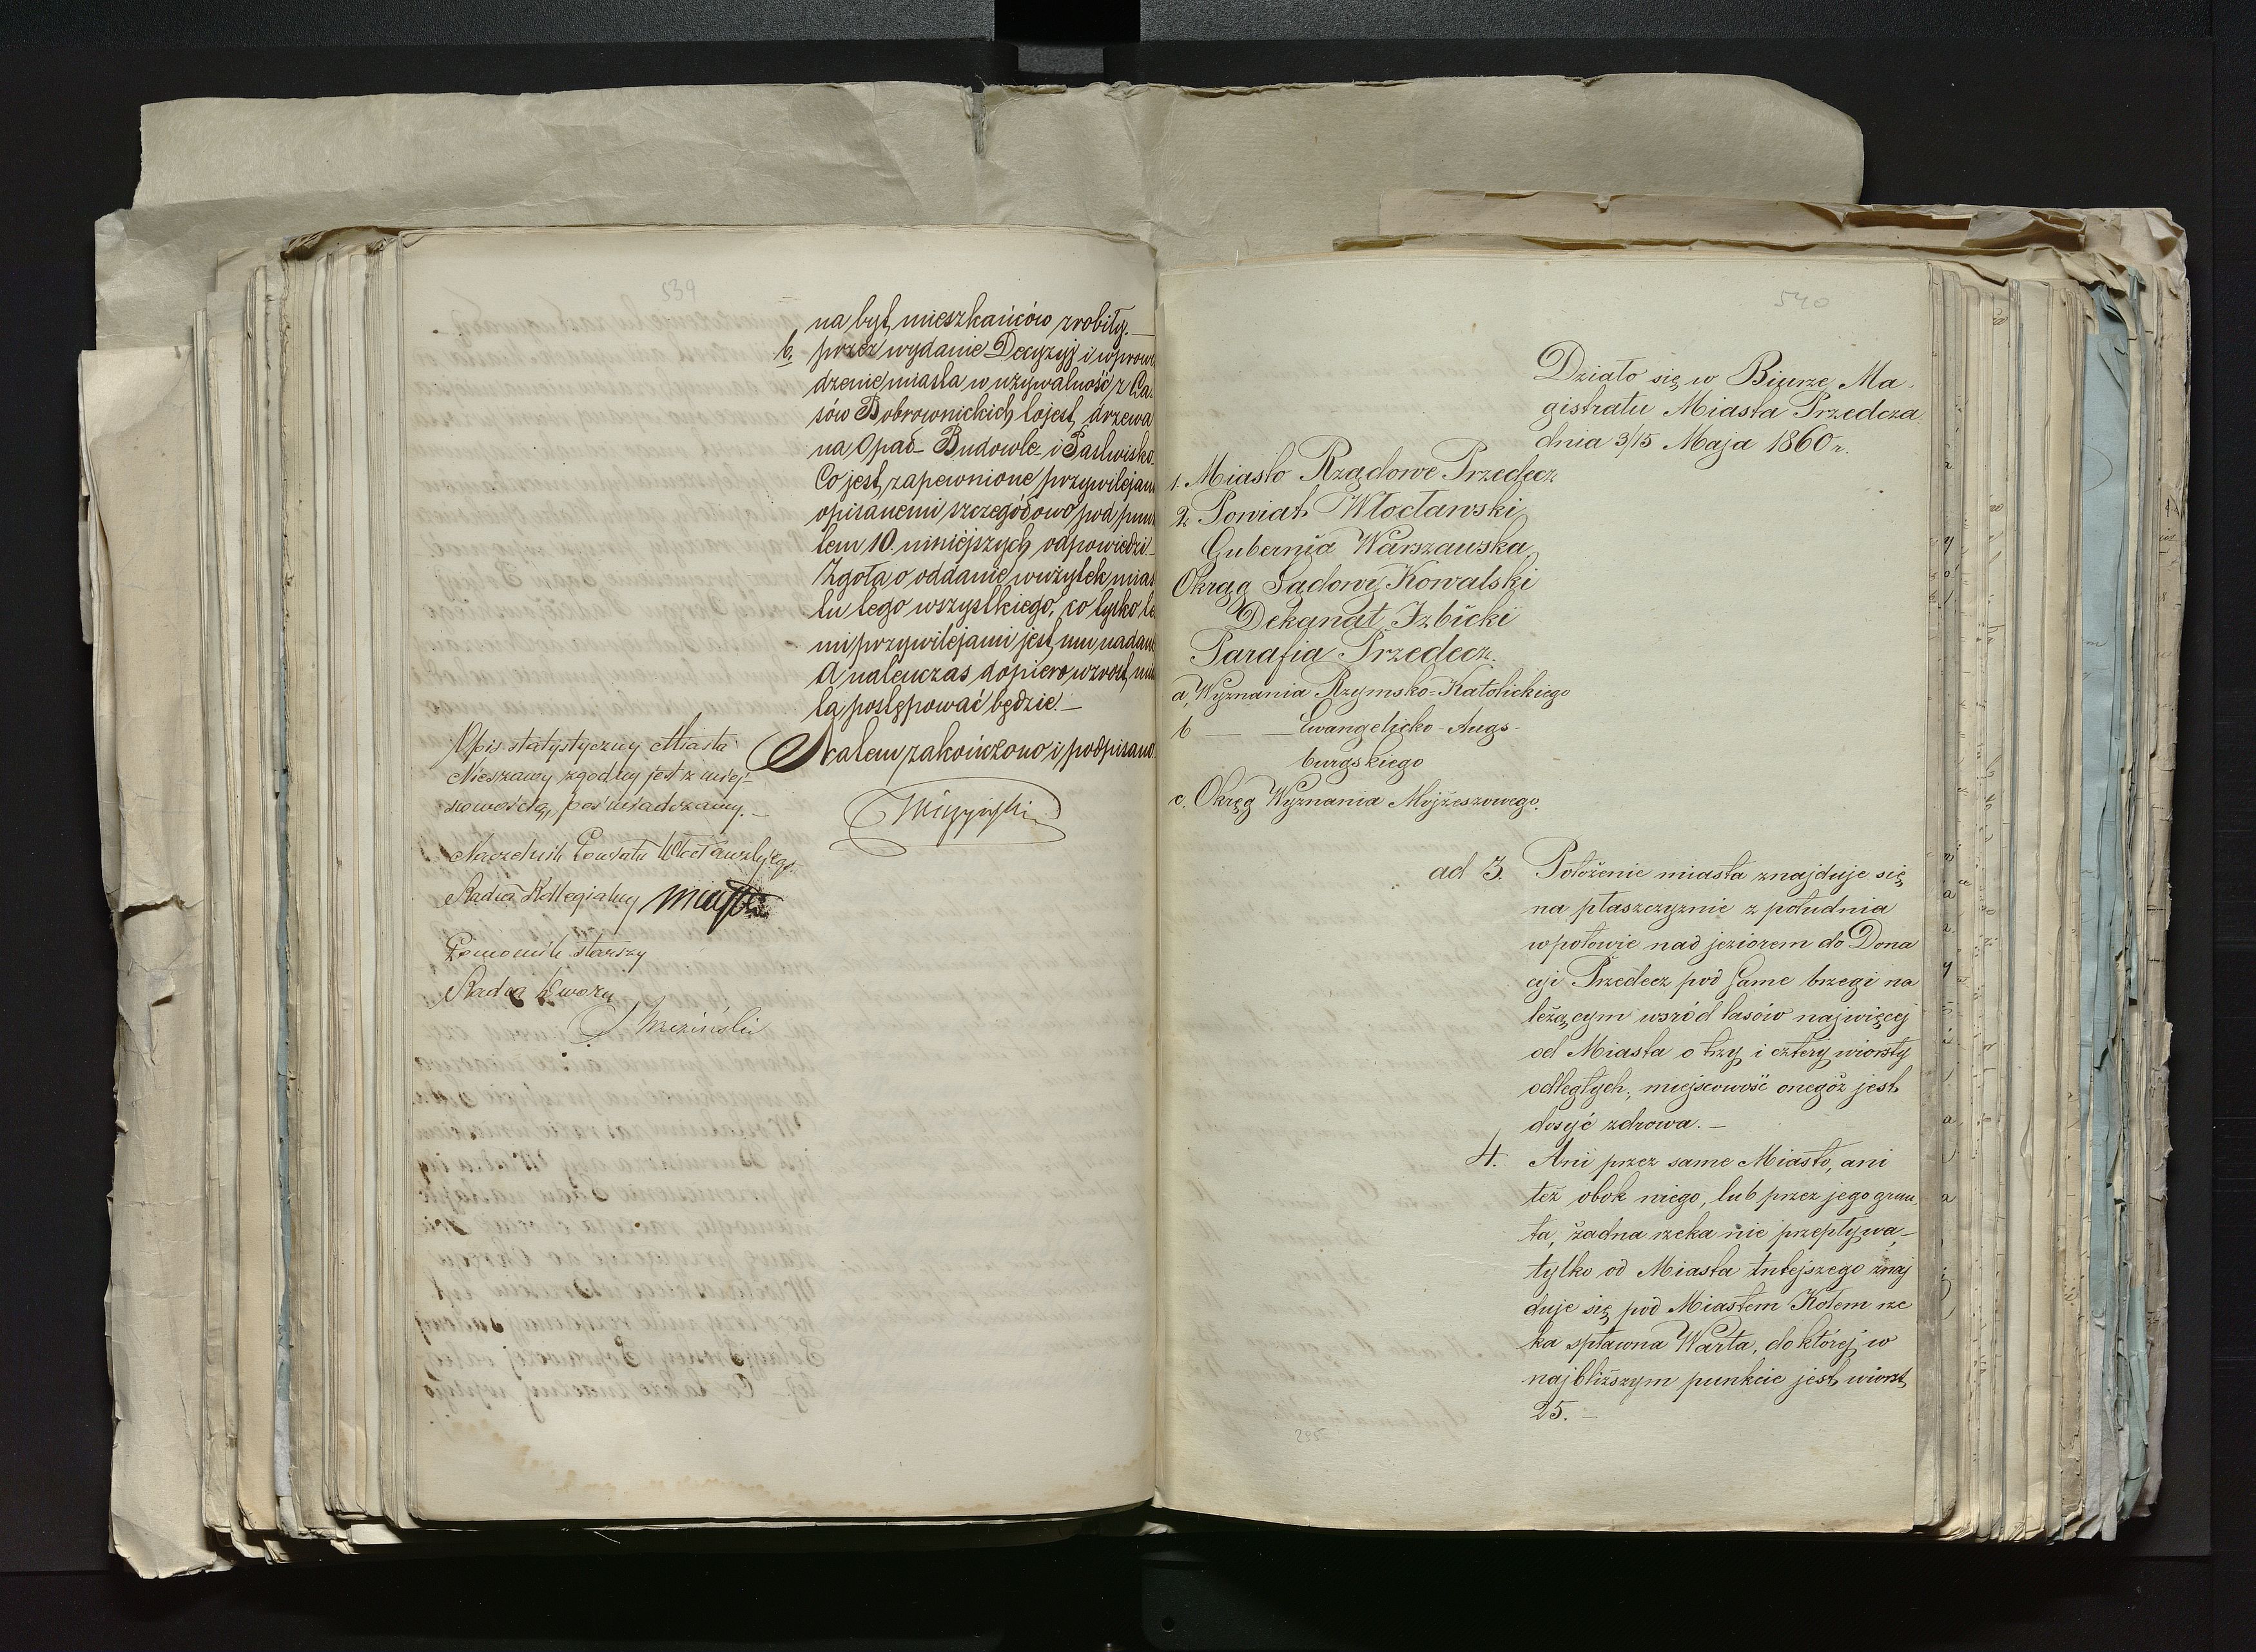 539
na byt mieszkańców zrobiły. —
b. przez wydanie Decyzyj i wprowa
dzenie miasta w używalność z La-
sów Bobrownickich to jest, drzewa
na Opał – Budowle – i Pastwisko.
Co jest zapewnione przywilejam
opisanemi szczegółowo pod punk
tem 10. niniejszych odpowiedzi –
Zgoła o oddanie w użytek mias
tu tego wszystkiego, co tylko te
mi przywilejami jest mu nadane
A natenczas dopiero wzrost mia
ta postępować będzie. —
Na tem zakończono i podpisano.
Opis statystyczny Miasta
Nieszawy zgodny jest z miej-
scowością, poświadczamy. —
Naczelnik Powiatu Włocławskiego.
Radca Kollegialny
Pomocnik starszy
Radca Dworu
540
Działo się w Biurze Ma-
gistratu Miasta Przedcza
dnia 3/15 Maja 1860 r.
1. Miasto Rządowe Przedecz
2. Powiat Włocławski
Gubernia Warszawska
Okrąg Sądowy Kowalski
Dekanat Izbicki
Parafia Przedecz.
a, Wyznania Rzymsko-Katolickiego
b — — Ewangelicko-Augs-
burgskiego
c. Okręg Wyznania Mojżeszowego.
ad 3. Położenie miasta znajduje się
na płaszczyznie z południa
w połowie nad jeziorem do Dona
cyi Przedecz pod same brzegi na
leżącym wsród lasów najwięcej
od Miasta o trzy i cztery wiorsty
odległych, miejscowość onegoż jest
dosyć zdrowa. —
4. Ani przez same Miasto, ani
też obok niego, lub przez jego grun
ta, żadna rzeka nie przepływa, —
tylko od Miasta tutejszego znaj
duje się pod Miastem Kołem rze
ka spławna Warta, do której w
najbliższym punkcie jest wiorst
25. —
295